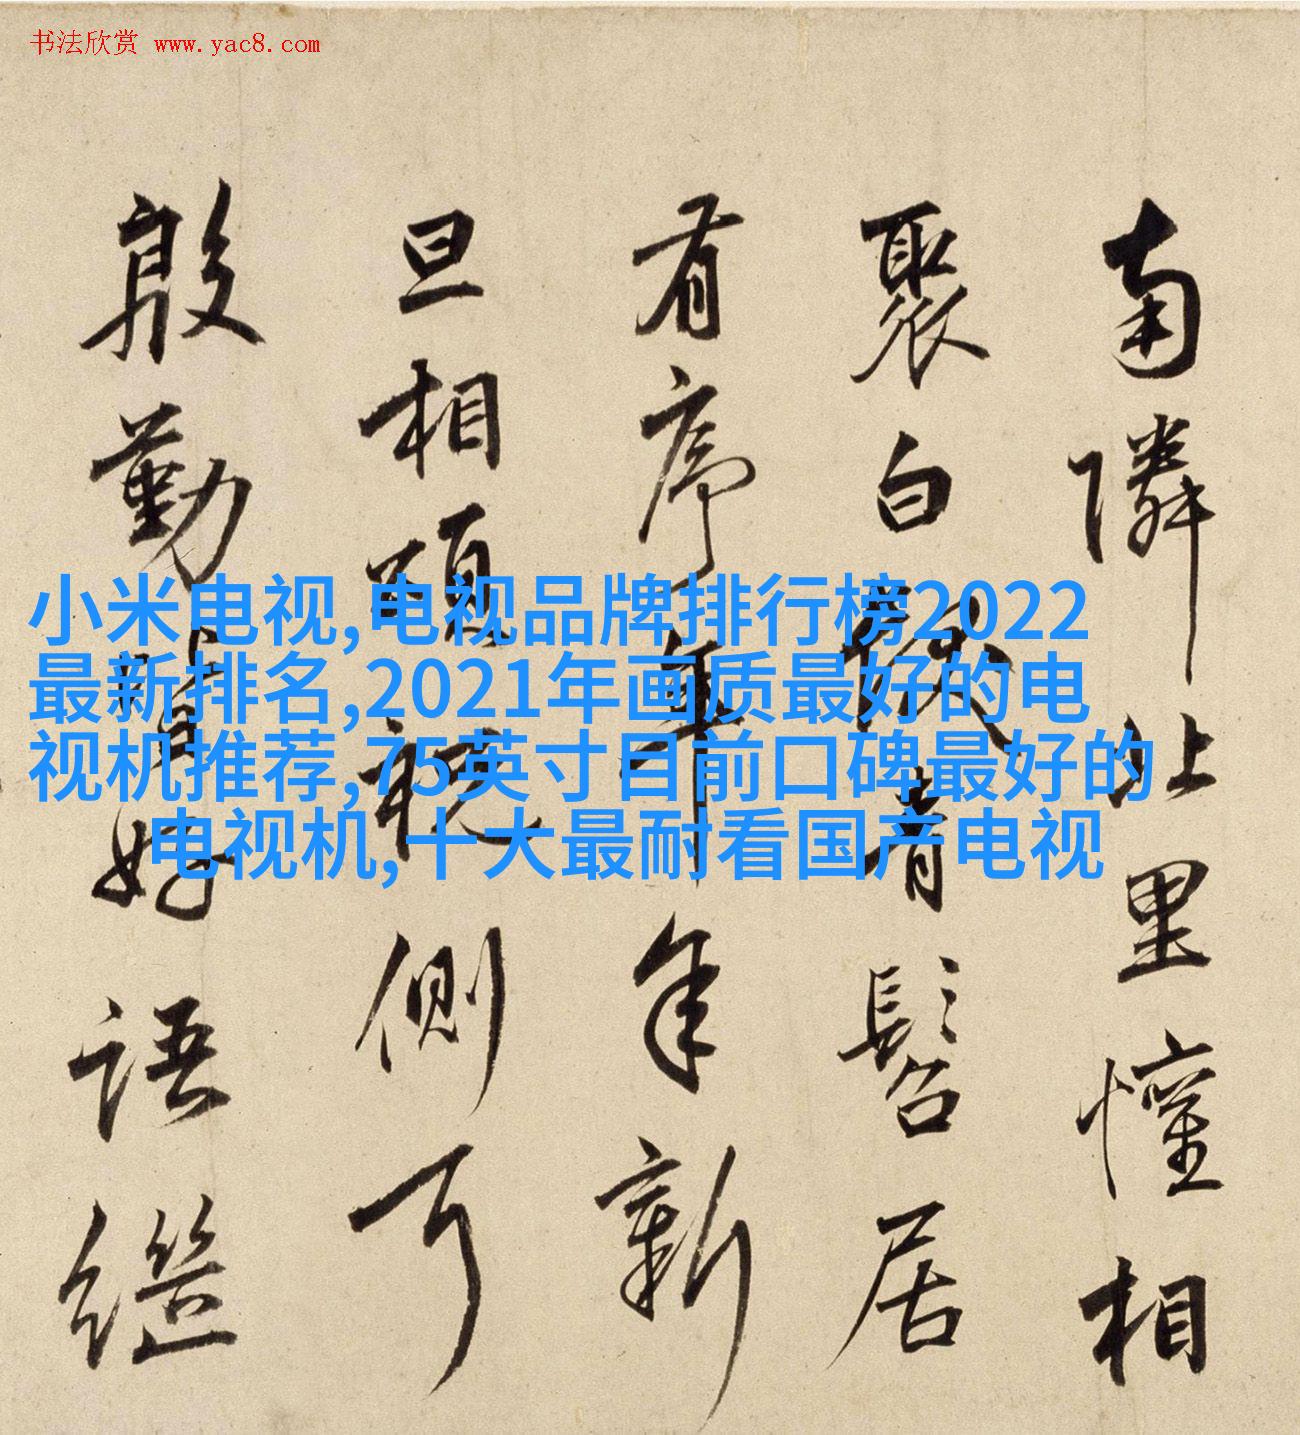 书法欣赏 www.yac8.com
南隣北里懽相
聚白青髫居
有序年年新
旦相顧祝側
殷勤皆好語繼
小米电视,电视品牌排行榜2022
最新排名,2021年画质最好的电
视机推荐,75英寸目前口碑最好的
电视机,十大最耐看国产电视